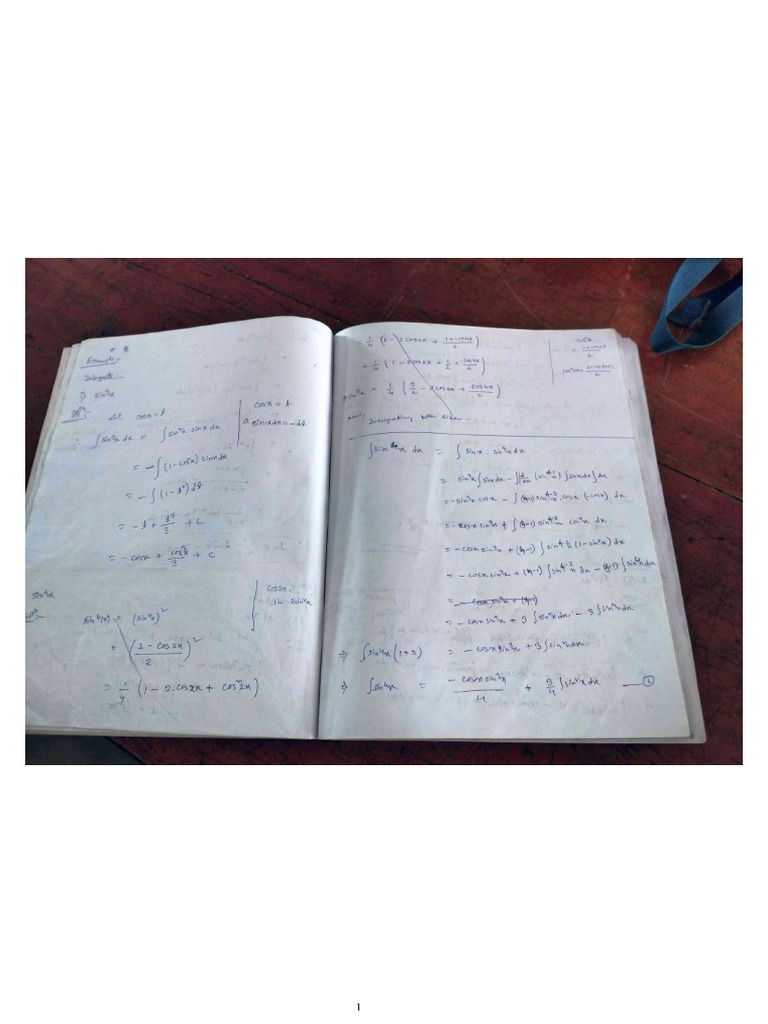 Example:-
Integrate:-
1) sin³x
Sol:- Let cosx = t
cosx = t
⇒ -sinxdx = dt
∴ ∫sin³x dx = ∫sin²x sinx dx
= -∫(1-cos²x) sinxdx
= -∫(1-t²)dt
= -t + t³/3 + C
= -cosx + cos³x/3 + C
sin⁴x
cos2x =
1 - 2sin²x
sin⁴(x) = (sin²x)²
= ((1-cos2x)/2)²
= 1/4 (1 - 2.cos2x + cos²2x)
= 1/4 (1 - 2cos2x + (1+cos4x)/2)
= 1/4 (1 - 2cos2x + 1/2 + cos4x/2)
sin⁴x = 1/4 (3/2 - 2cos2x + cos4x/2)
Integrating both side.
∫sin⁴x dx = ∫sinx . sin³x dx
= sin³x∫sinxdx - ∫[d/dx (sin⁴⁻¹x) ∫sinxdx] dx
= -sin³x cosx - ∫(4-1) sin⁴⁻²x . cosx (-cosx) dx
= -cosx sin³x + ∫(4-1) sin⁴⁻²x cos²x dx
= -cosx sin³x + (4-1) ∫sin⁴⁻²x (1-sin²x) dx
= -cosx sin³x + (4-1) ∫sin⁴⁻²x dx - (4-1) ∫sin⁴x dx
= -cosx sin³x + (4-1)
= -cosx sin³x + 3∫sin²x dx - 3∫sin⁴x dx
⇒ ∫sin⁴x (1+3) = -cosx sin³x + 3∫sin²x dx
⇒ ∫sin⁴x = -cosx sin³x/4 + 3/4 ∫sin²x dx — ①
1